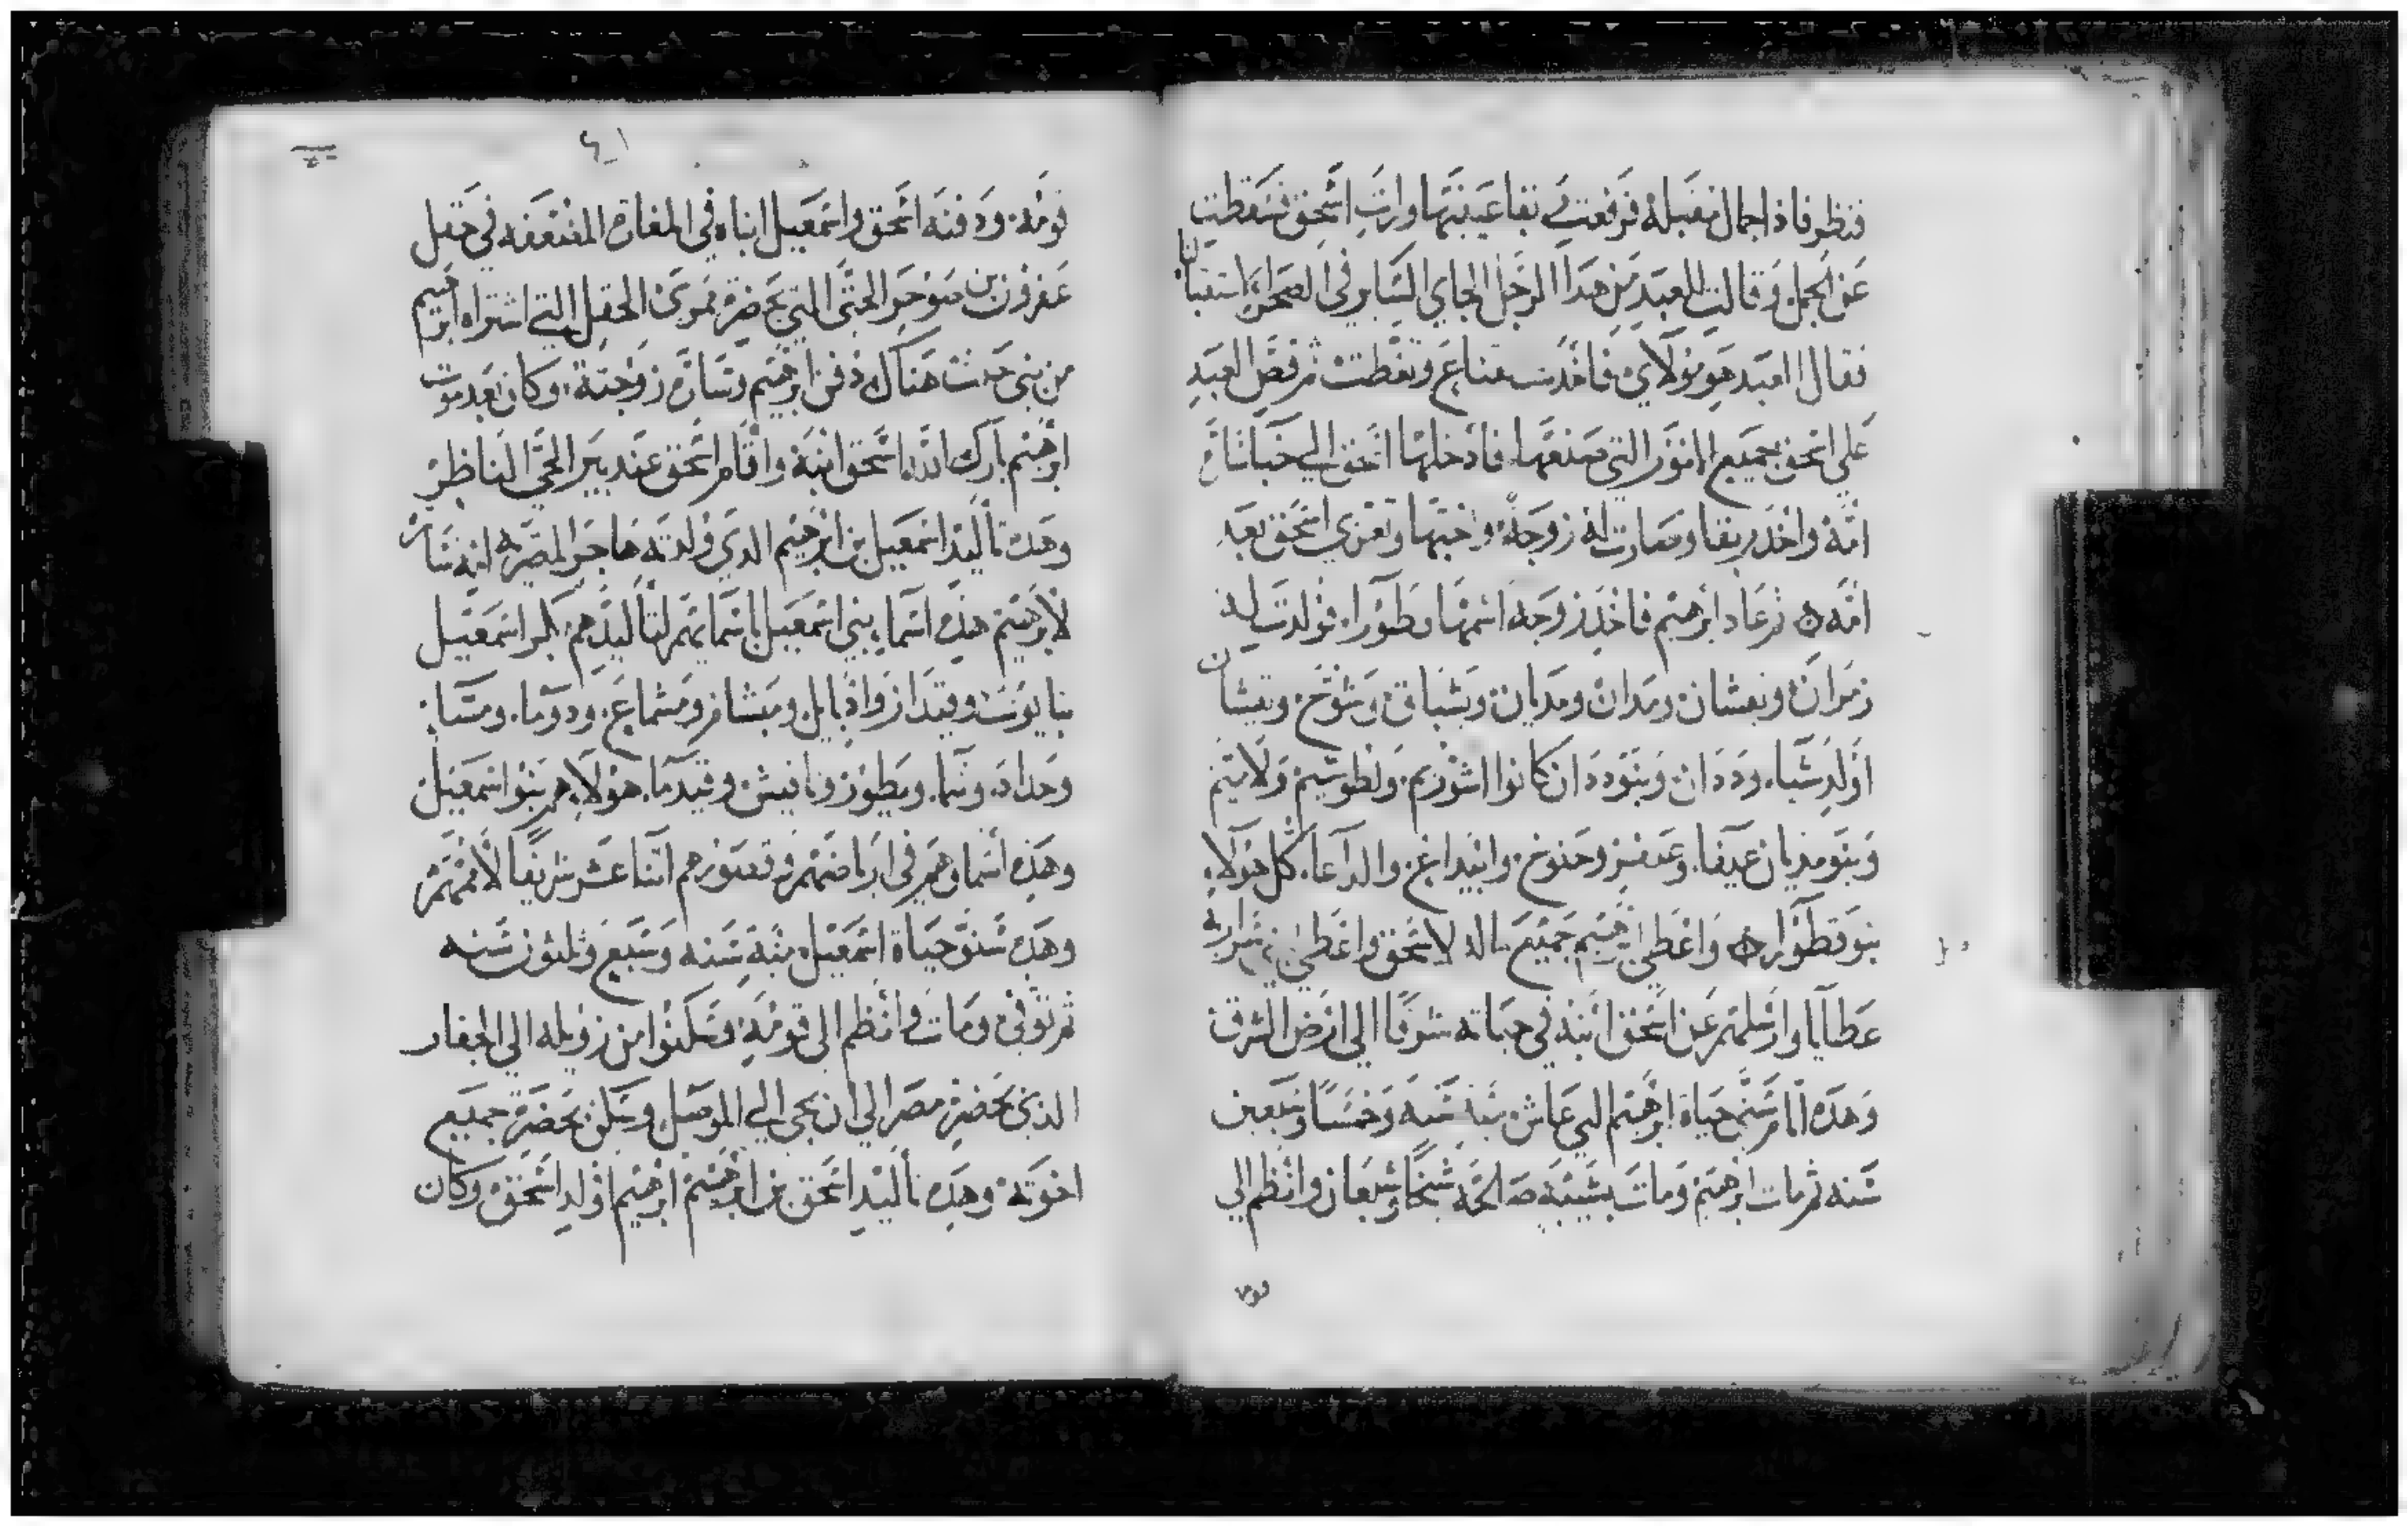 فنظر فاذا جمال مقبله فرفعت ربقا عينيها وارت اسحق فسقطت
عن الجمل وقالت للعبد من هدا الرجل الجاي الساير في الصحرا استقبالنا
فقال العبد هو مولاي فاخدت قناع وتغطت ثم قص العبد
علي اسحق جميع الامور التي صنعها فادخلها اسحق الي خبا سارة
امه واخد ربقا وصارت له زوجة واحبها وتعزي اسحق بعد
امه ثم عاد ابرهيم فاخد زوجه اسمها قطورا فولدت له
زمران ويقشان ومدان ومديان ويشباق وشوح ويقشان
اولد شبا ودادان وبنو ددان كانوا اشوريم ولطوسيم ولاميم
وبنو مديان عيفا وعفر وحنوخ وابيداع والداعا كل هولاء
بنو قطورا واعطي ابرهيم جميع ماله لاسحق واعطي بني سراريه
عطايا وارسلهم عن اسحق ابنه في حياته شرقا الي ارض الشرق
وهده ايام سني حياة ابرهيم التي عاش مية سنة وخمسا وسبعين
سنه ثم مات ابرهيم ومات بشيبه صالحه شيخا وشبعان وانظم الي
قومه
٤١
قومه ودفنه اسحق واسمعيل ابناه في المغارة المضعفه في حقل
عفرون بن صوحر الحتي التي بحضرة ممري الحقل التي اشتراه ابرهيم
من بني حث هناك دفن ابرهيم وسارة زوجته وكان بعد موت
ابرهيم بارك الله اسحق ابنه واقام اسحق عند بير الحي الناظر
وهده تاليد اسمعيل بن ابرهيم الدي ولدته هاجر المصريه امة سارة
لابرهيم هده اسما بني اسمعيل باسمايهم لتاليدهم بكر اسمعيل
نبايوت وقيدار وادبايل ومبسام ومشماع ودوما ومسا
وحداد وتيما ويطور ونافيش وقيدما هولاء هم بنو اسمعيل
وهده اسماوهم في ارباضهم وقصورهم اثنا عشر شريفا لاممهم
وهده سنو حياة اسمعيل مية سنه وسبع وثلثون سنه
ثم توفي ومات وانظم الي قومه وسكنوا من زويله الي الجفار
الدي بحضرة مصر الي ان يجي الي الموصل وسكن بحضرة جميع
اخوته وهده تاليد اسحق بن ابرهيم ابرهيم اولد اسحق وكان